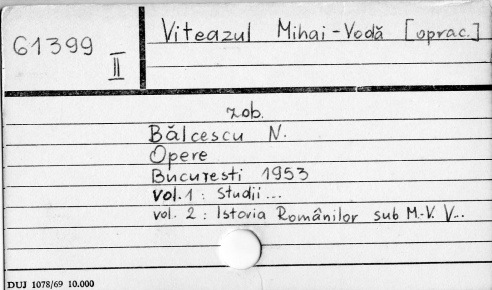 Viteazul Mihai-Vodă [oprac.]
61399
II
zob.
Bălcescu N.
Opere
Bucureşti 1953
Vol. 1 : Studii...
vol. 2 : Istoria Românilor sub M.-V. V...
DUJ 1078/69 10.000